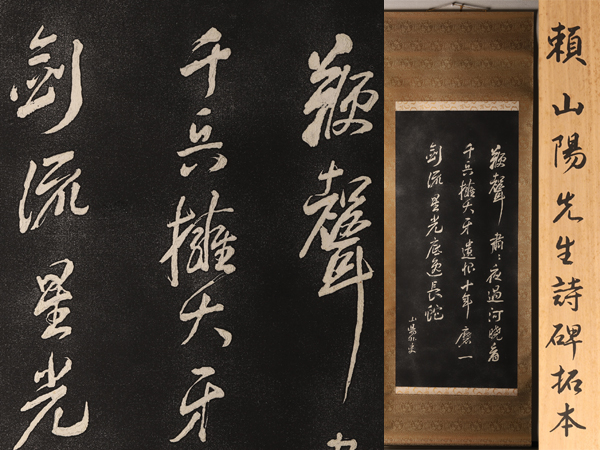 頼山陽先生詩碑拓本
鞭聲肅〻夜過河曉看
千兵擁大牙遺恨十年磨一
劍流星光底逸長蛇
山陽外史
鞭聲
千兵擁大牙
劍流星光